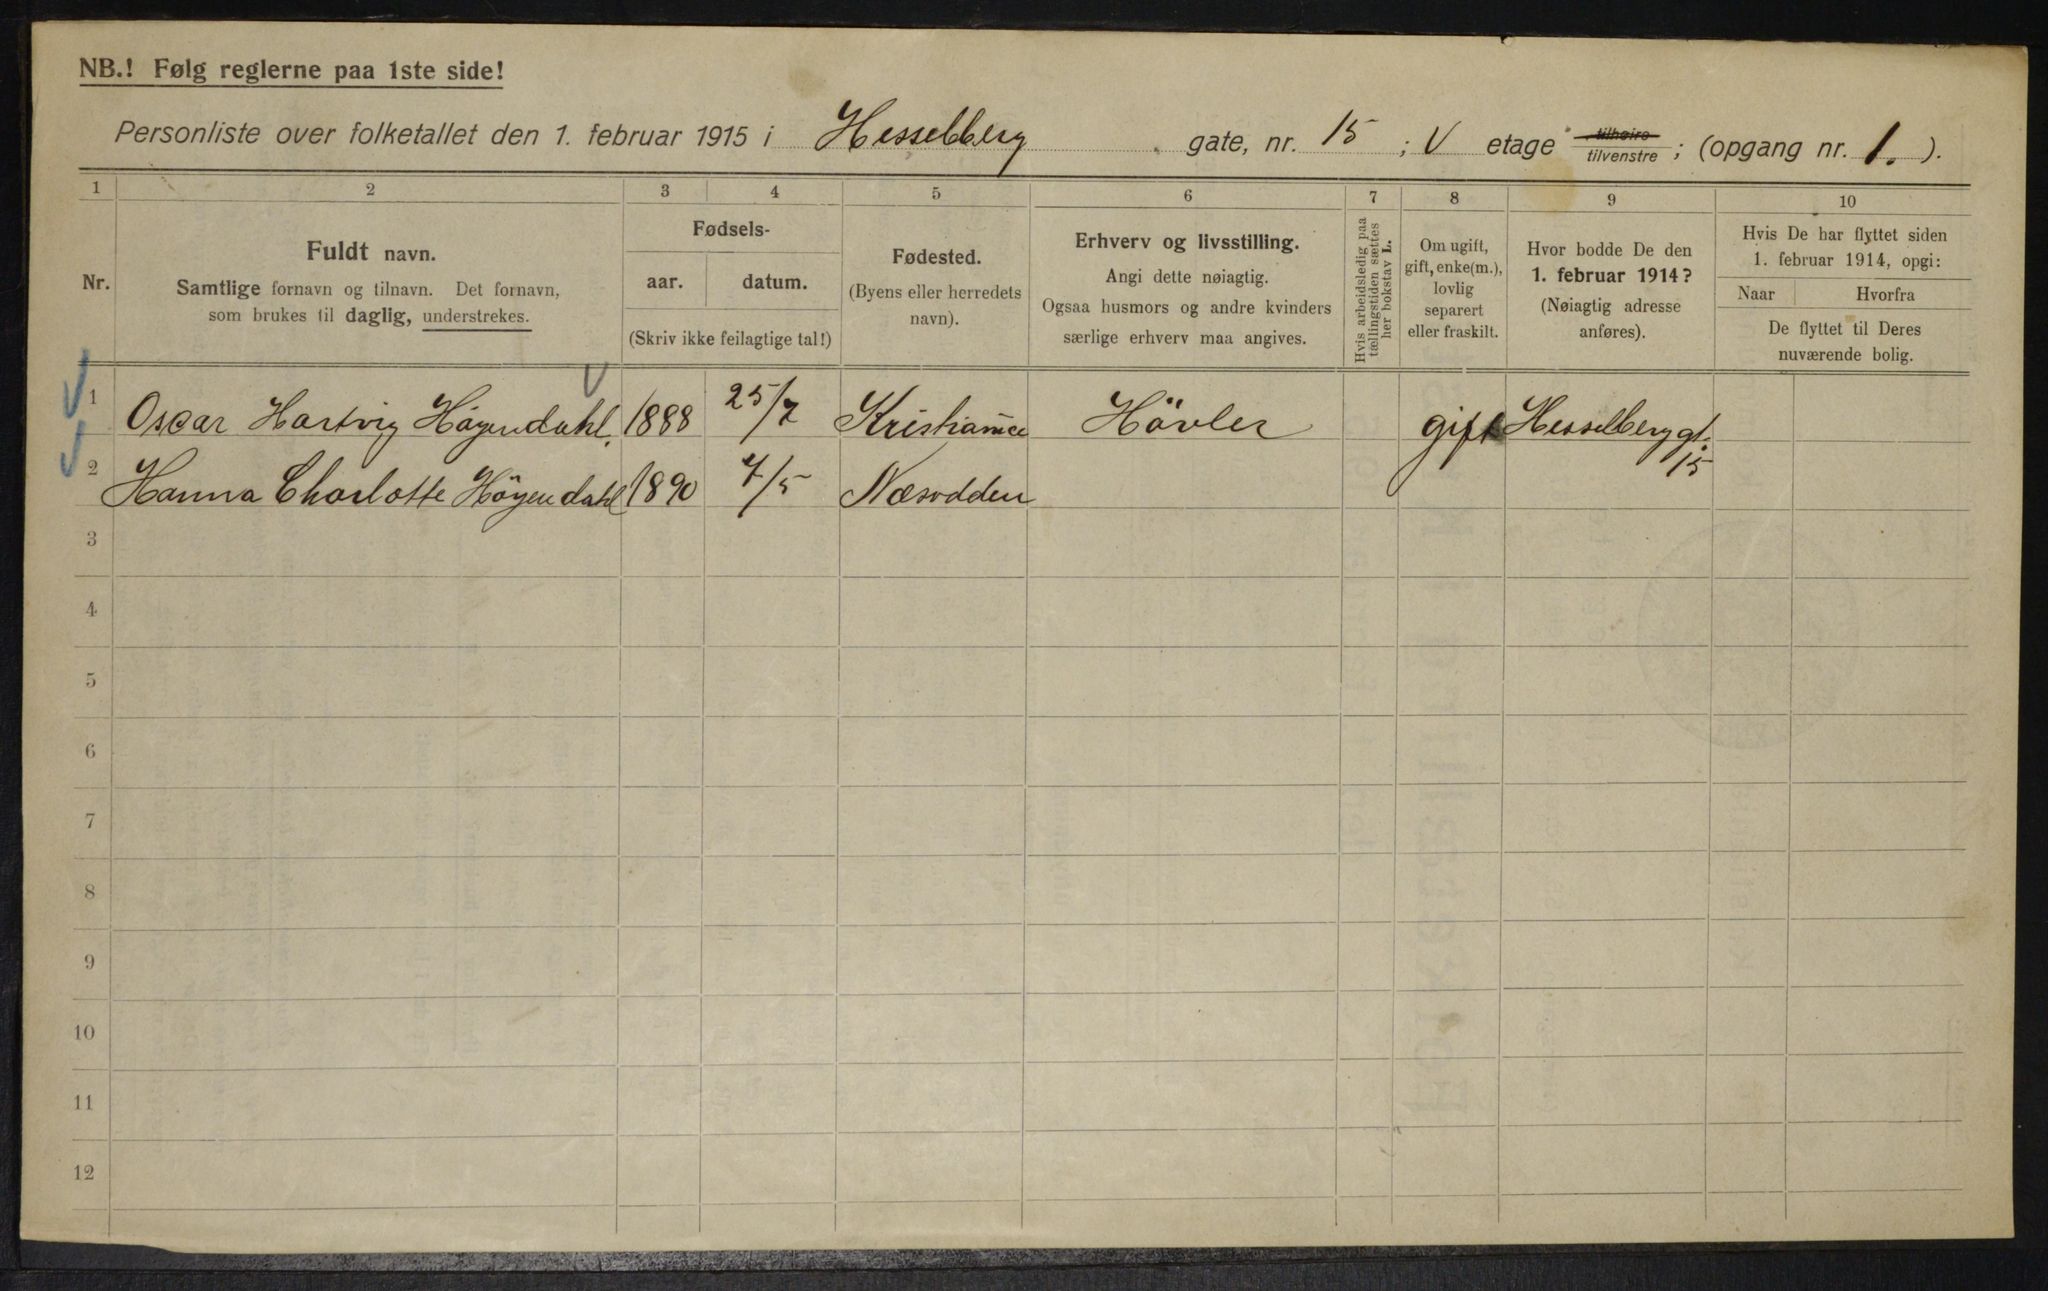 NB.! Følg reglerne paa 1ste side!
Personliste over folketallet den 1. februar 1915 i Hesselberg gate, nr. 15 ; V etage tilhøire tilvenstre ; (opgang nr. 1. ).
1 2 3 4 5 6 7 8 9 10
Nr.
Fuldt navn.
Samtlige fornavn og tilnavn. Det fornavn,
som brukes til daglig, understrekes.
Fødsels-
aar. datum.
(Skriv ikke feilagtige tal!)
Fødested.
(Byens eller herredets
navn).
Erhverv og livsstilling.
Angi dette nøiagtig.
Ogsaa husmors og andre kvinders
særlige erhverv maa angives.
Hvis arbeidsledig paa
tællingstiden sættes
her bokstav L.
Om ugift,
gift, enke(m.),
lovlig
separert
eller fraskilt.
Hvor bodde De den
1. februar 1914?
(Nøiagtig adresse
anføres).
Hvis De har flyttet siden
1. februar 1914, opgi:
Naar Hvorfra
De flyttet til Deres
nuværende bolig.
1 Oscar Hartvig Høyendahl. 1888 25/7 Kristiania Hövler gift Hesselberg gt.
15
2 Hanna Charlotte Höyendahl 1890 7/5 Næsodden
3
4
5
6
7
8
9
10
11
12